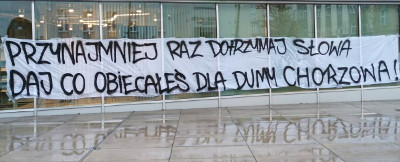 PRZYNAJMNIEJ RAZ DOTRZYMAJ SŁOWA
DAJ CO OBIECAŁEŚ DLA DUMY CHORZOWA!